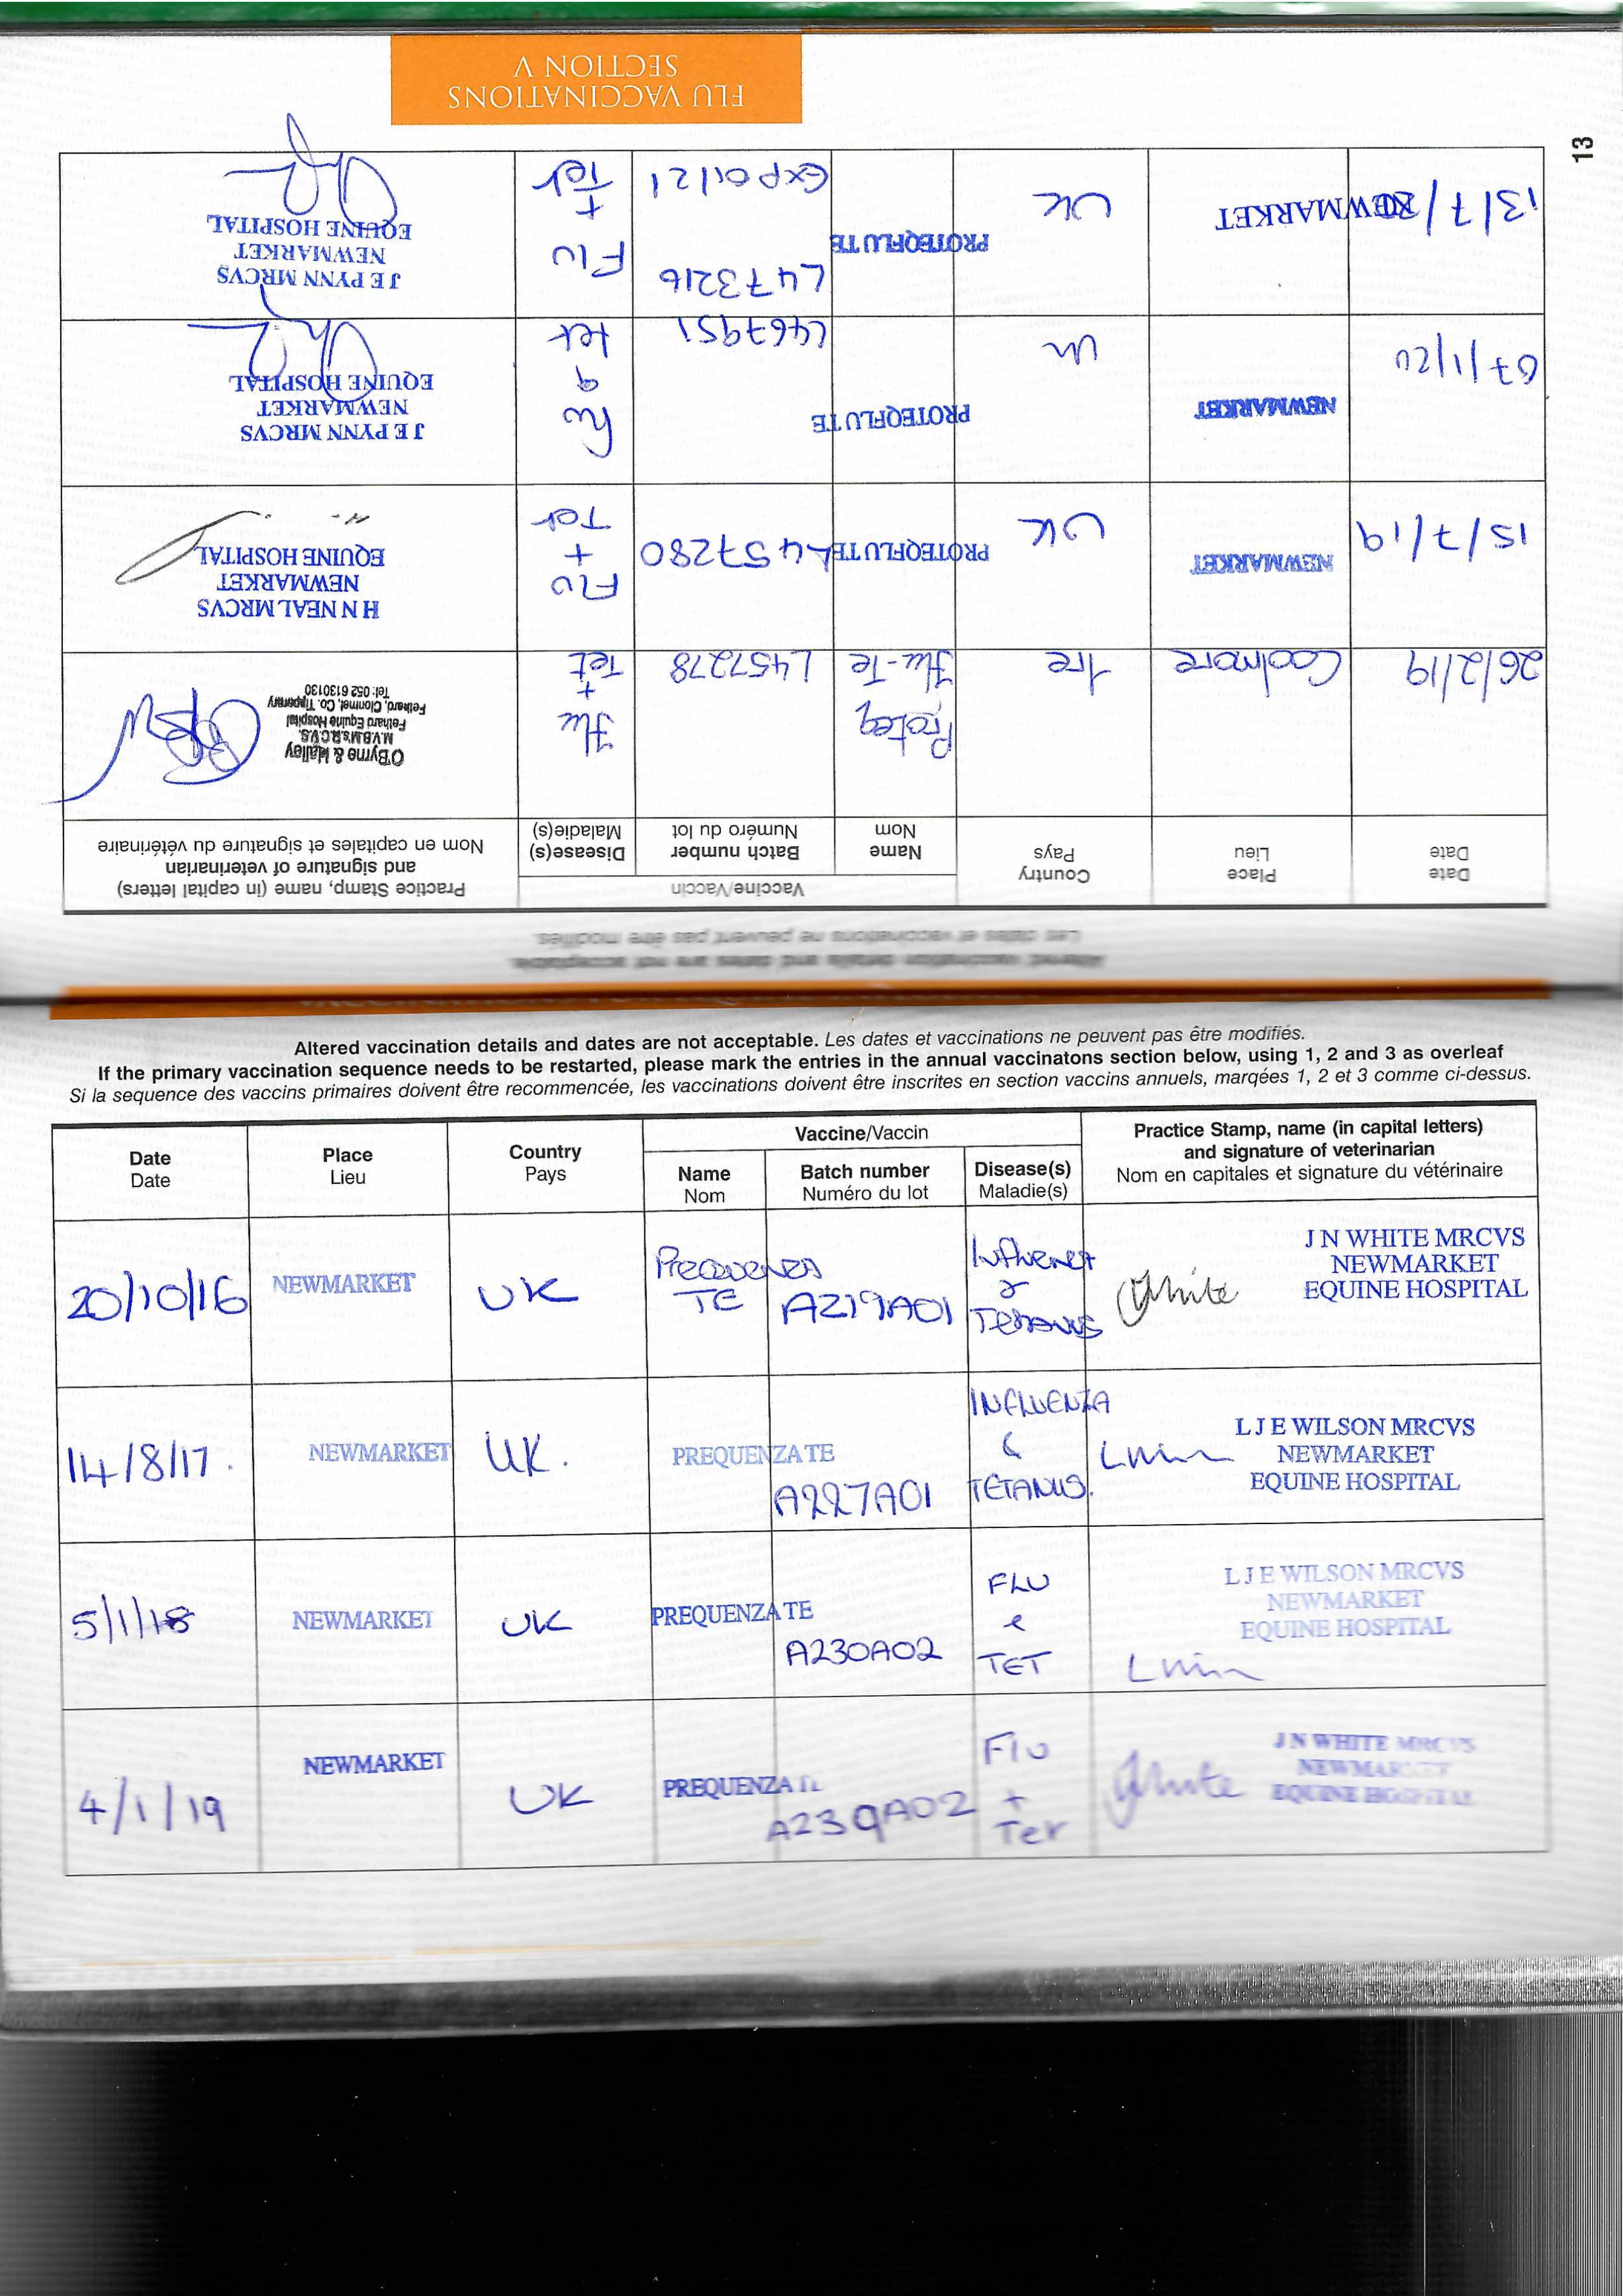 FLU VACCINATIONS
SECTION V
13
Altered vaccination details and dates are not acceptable.
Les dates et vaccinations ne peuvent pas être modifiés.
Date
Date
Place
Lieu
Country
Pays
Vaccine/Vaccin
Name
Nom
Batch number
Numéro du lot
Disease(s)
Maladie(s)
Practice Stamp, name (in capital letters)
and signature of veterinarian
Nom en capitales et signature du vétérinaire
26/2/19
Coolmore
Ire
Proteq
Flu-Te
L457278
Flu
+
Tet
O'Byrne & Halley
M.V.B.M's.R.C.V.S.
Fethard Equine Hospital
Fethard, Clonmel, Co. Tipperary
Tel: 052 6130130
15/7/19
NEWMARKET
UK
PROTEQFLU TE
L457280
Flu
+
Tet
H N NEAL MRCVS
NEWMARKET
EQUINE HOSPITAL
07/1/20
NEWMARKET
UK
PROTEQFLU TE
L467951
Flu
&
tet
J E PYNN MRCVS
NEWMARKET
EQUINE HOSPITAL
13/7/20
NEWMARKET
UK
PROTEQFLU TE
L473216
Exp 01/21
Flu
+
Tet
J E PYNN MRCVS
NEWMARKET
EQUINE HOSPITAL
Altered vaccination details and dates are not acceptable. Les dates et vaccinations ne peuvent pas être modifiés.
If the primary vaccination sequence needs to be restarted, please mark the entries in the annual vaccinatons section below, using 1, 2 and 3 as overleaf
Si la sequence des vaccins primaires doivent être recommencée, les vaccinations doivent être inscrites en section vaccins annuels, marqées 1, 2 et 3 comme ci-dessus.
Date
Date
Place
Lieu
Country
Pays
Vaccine/Vaccin
Name
Nom
Batch number
Numéro du lot
Disease(s)
Maladie(s)
Practice Stamp, name (in capital letters)
and signature of veterinarian
Nom en capitales et signature du vétérinaire
20/10/16
NEWMARKET
UK
Prequenza
TE
A219A01
Influenza
&
Tetanus
White
J N WHITE MRCVS
NEWMARKET
EQUINE HOSPITAL
14/8/17.
NEWMARKET
UK.
PREQUENZA TE
A227A01
INFLUENZA
&
TETANUS.
L J E WILSON MRCVS
NEWMARKET
EQUINE HOSPITAL
5/1/18
NEWMARKET
UK
PREQUENZA TE
A230A02
FLU
&
TET
L J E WILSON MRCVS
NEWMARKET
EQUINE HOSPITAL
4/1/19
NEWMARKET
UK
PREQUENZA TE
A239A02
Flu
+
Tet
White
J N WHITE MRCVS
NEWMARKET
EQUINE HOSPITAL